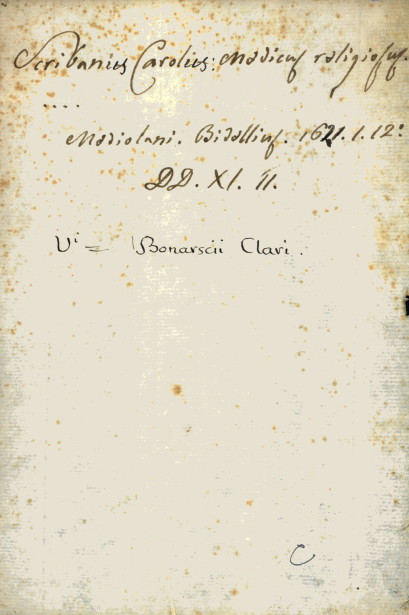 Scribanius Carolus: Medicus religiosus.
....
Mediolani. Bidellius. 1621. 1. 12º
DD. XI. 11.
Vi = Bonarscii Clari.
C